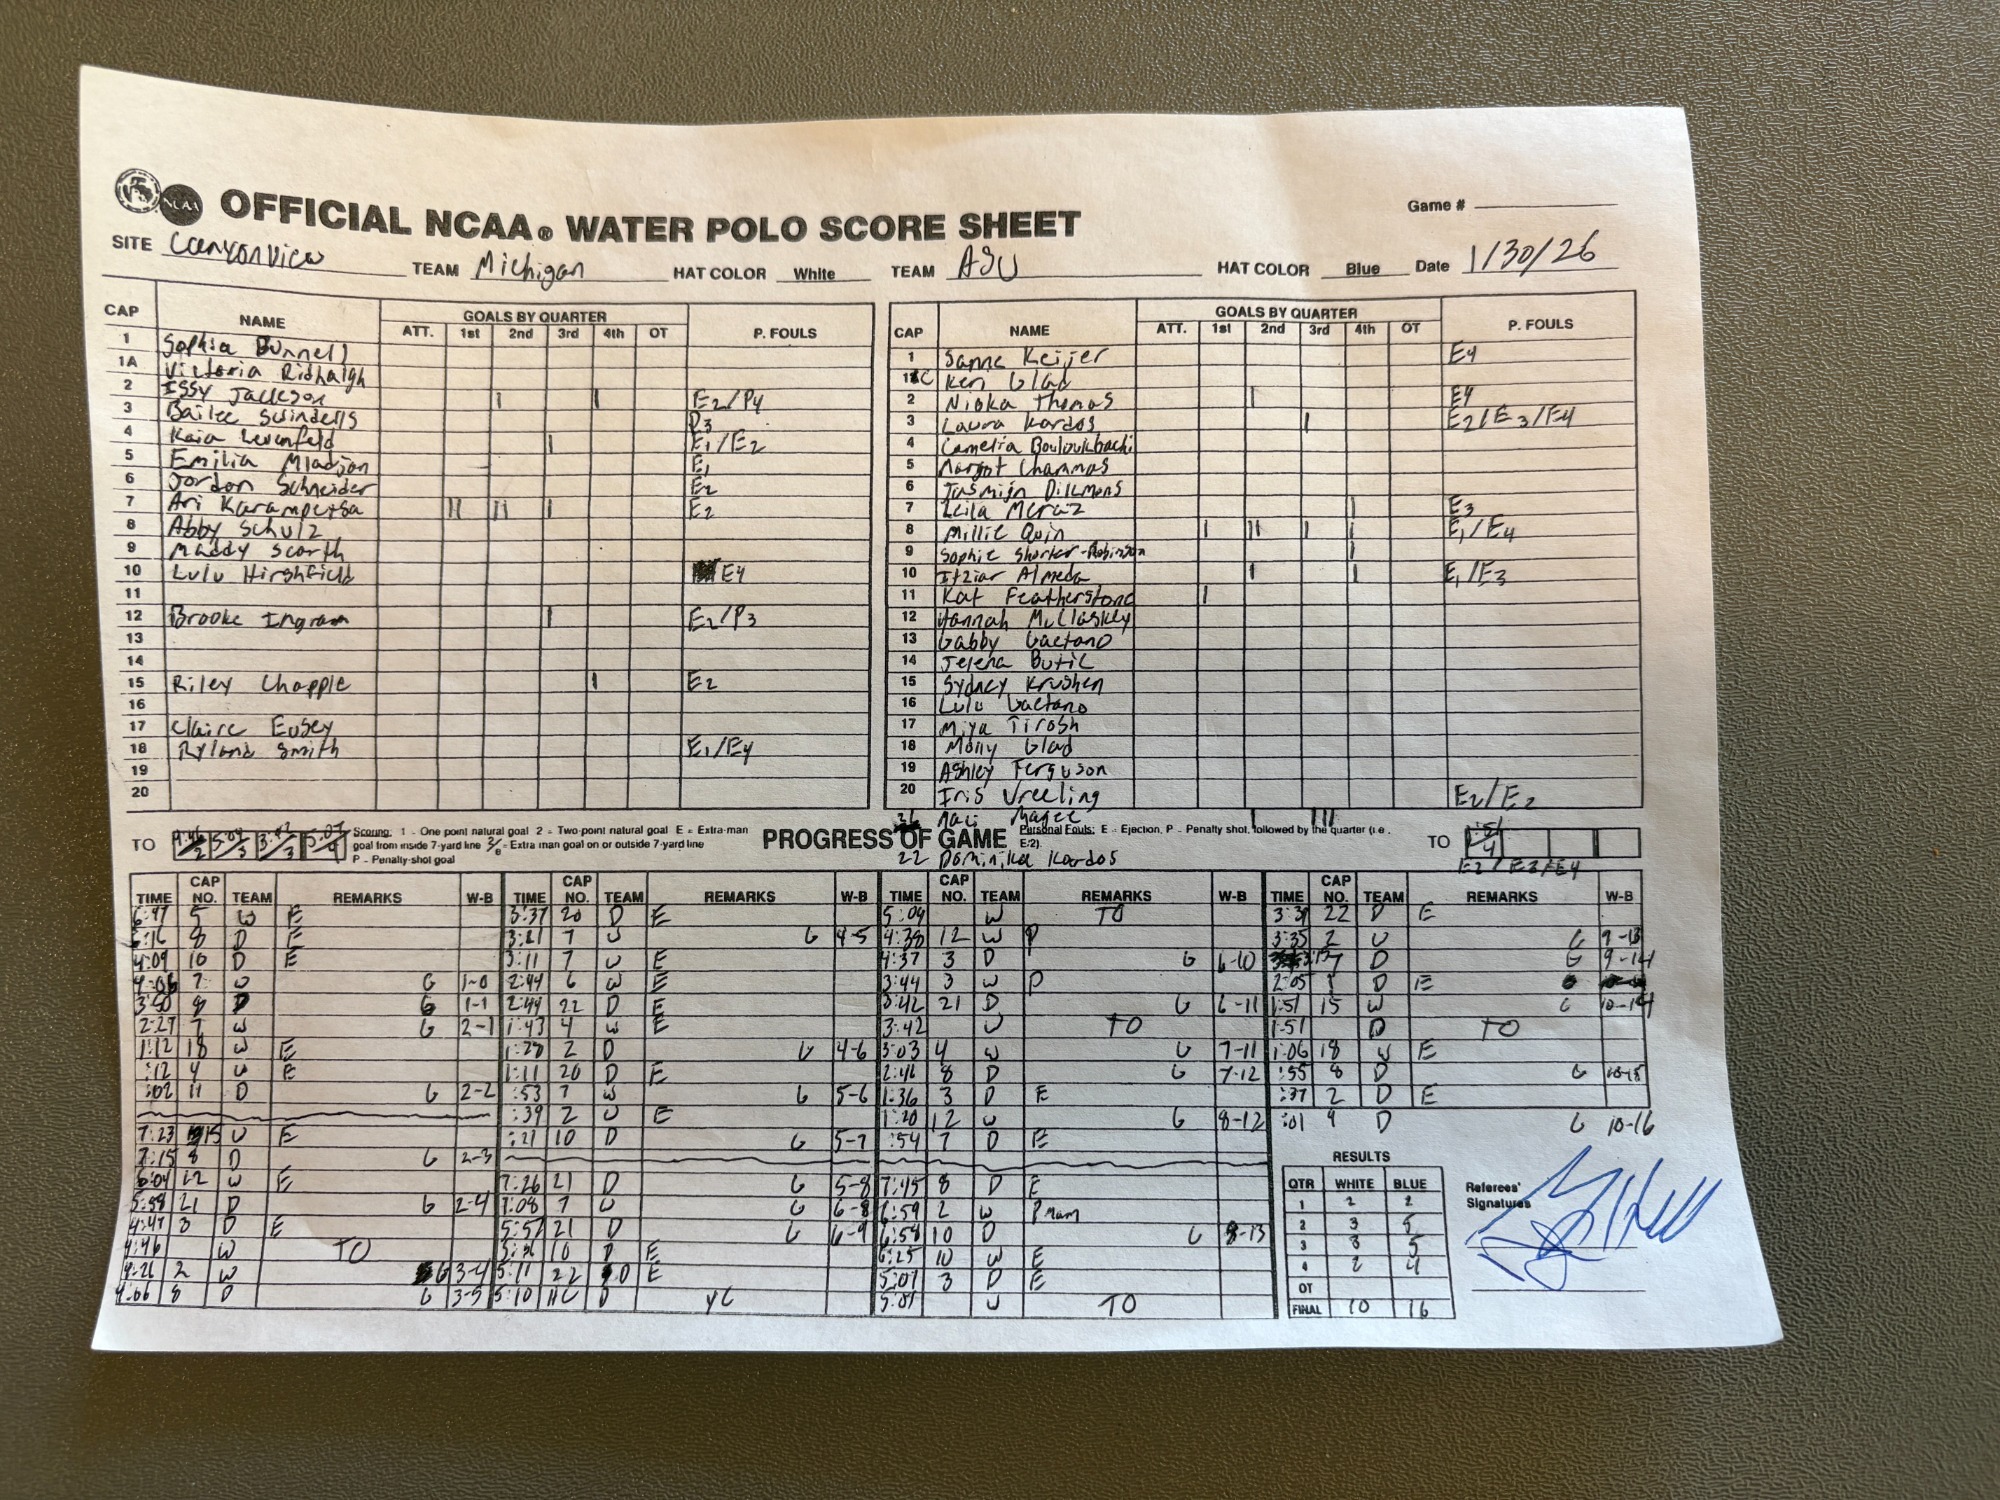 OFFICIAL NCAA® WATER POLO SCORE SHEET
Game #
SITE Canyonview TEAM Michigan HAT COLOR White TEAM ASU HAT COLOR Blue Date 1/30/26
CAP NAME ATT. GOALS BY QUARTER 1st 2nd 3rd 4th OT P. FOULS
1 Sophia Bunnell
1A Victoria Ridhalgh
2 Issy Jackson | | E2/P4
3 Bailee Swindells P3
4 Kaia Levenfeld | E1/E2
5 Emilia Mladjan E1
6 Jordon Schneider E2
7 Ari Karampetsa || || | E2
8 Abby Schulz
9 Maddy Scorth
10 Lulu Hirshfield E4
11
12 Brooke Ingram | E2/P3
13
14
15 Riley Chapple | E2
16
17 Claire Eusey
18 Ryland Smith E1/E4
19
20
CAP NAME ATT. GOALS BY QUARTER 1st 2nd 3rd 4th OT P. FOULS
1 Sanne Keijer E4
1C Keri Glad
2 Nioka Thomas | E4
3 Laura Kardos | E2/E3/E4
4 Camelia Bouloukbachi
5 Margot Chammas
6 Jasmijn Dilemans
7 Leila Meraz | E3
8 Millie Quin | || | | E1/E4
9 Sophie Shorter-Robinson |
10 Itziar Almeda | | E1/E3
11 Kat Featherstone |
12 Hannah McClaskey
13 Gabby Gaetano
14 Jelena Butic
15 Sydney Krushen
16 Lulu Gaetano
17 Miya Tirosh
18 Molly Glad
19 Ashley Ferguson
20 Iris Vreeling E2/E2
Maci Magee | |||
22 Dominika Kardos E2/E3/E4
TO 4:46/2 5:04/3 3:42/3 5:07/4
Scoring: 1 - One point natural goal 2 - Two-point natural goal E = Extra-man
goal from inside 7-yard line = Extra man goal on or outside 7-yard line
P - Penalty-shot goal
PROGRESS OF GAME
Personal Fouls: E - Ejection, P - Penalty shot, followed by the quarter (i.e.
E/2).
TO 1:51/4
TIME CAP NO. TEAM REMARKS W-B
6:47 5 W E
6:16 8 D E
4:09 10 D E
4:06 7 W G 1-0
3:50 8 D G 1-1
2:27 7 W G 2-1
1:12 18 W E
:12 4 W E
:02 11 D G 2-2
7:23 15 W E
7:15 8 D G 2-3
6:04 12 W E
5:58 21 D G 2-4
4:47 3 D E
4:46 W TO
4:26 2 W G 3-4
4:06 8 D G 3-5
TIME CAP NO. TEAM REMARKS W-B
3:37 20 D E
3:21 7 W G 4-5
3:11 7 W E
2:44 6 W E
2:44 22 D E
1:43 4 W E
1:20 2 D G 4-6
1:11 20 D E
:53 7 W G 5-6
:39 2 W E
:21 10 D G 5-7
7:26 21 D G 5-8
7:08 7 W G 6-8
5:52 21 D G 6-9
10 D E
5:11 22 D E
5:10 HC D YC
TIME CAP NO. TEAM REMARKS W-B
5:04 W TO
4:38 12 W P
4:37 3 D G 6-10
3:44 3 W P
3:42 21 D G 6-11
3:42 W TO
3:03 4 W G 7-11
2:41 8 D G 7-12
1:36 3 D E
1:20 12 W G 8-12
:54 7 D E
7:45 8 D E
6:59 2 W P
6:58 10 D G 8-13
6:25 10 W E
5:07 3 D E
5:07 W TO
TIME CAP NO. TEAM REMARKS W-B
3:39 22 D E
3:35 2 W G 9-13
7 D G 9-14
2:05 1 D E
1:51 15 W G 10-14
1:51 D TO
1:06 18 W E
:55 8 D G 10-15
:37 2 D E
:01 9 D G 10-16
RESULTS
QTR WHITE BLUE
1 2 2
2 3 5
3 3 5
4 2 4
OT
FINAL 10 16
Referees'
Signatures